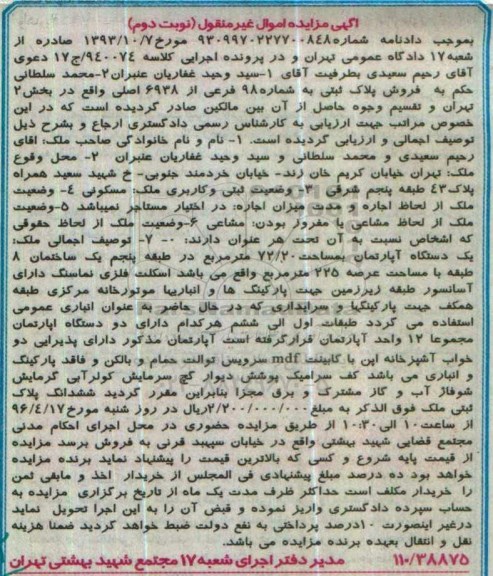 آگهی مزایده اموال غیرمنقول (نوبت دوم)
بموجب دادنامه شماره۹۳۰۹۹۷۰۲۲۷۷۰۰۸۴۸ مورخ۱۳۹۳/۱۰/۷ صادره از
شعبه۱۷ دادگاه عمومی تهران و در پرونده اجرایی کلاسه ۹۴۰۰۷۴/ج۱۷ دعوی
آقای رحیم سعیدی بطرفیت آقای ۱-سید وحید غفاریان عنبران۲-محمد سلطانی
حکم به فروش پلاک ثبتی به شماره۹۸ فرعی از ۶۹۳۸ اصلی واقع در بخش۲
تهران و تقسیم وجوه حاصل از آن بین مالکین صادر گردیده است که در این
خصوص مراتب جهت ارزیابی به کارشناس رسمی دادگستری ارجاع و بشرح ذیل
توصیف اجمالی و ارزیابی گردیده است. ۱- نام و نام خانوادگی صاحب ملک: اقای
رحیم سعیدی و محمد سلطانی و سید وحید غفاریان عنبران ۲- محل وقوع
ملک: تهران خیابان کریم خان زند- خیابان خردمند جنوبی- خ شهید سعید همراه
پلاک۴۳ طبقه پنجم شرقی ۳- وضعیت ثبتی وکاربری ملک: مسکونی ۴- وضعیت
ملک از لحاظ اجاره و مدت میزان اجاره: در اختیار مستاجر نمیباشد ۵-وضعیت
ملک از لحاظ مشاعی یا مفروز بودن: مشاعی ۶-وضعیت ملک از لحاظ حقوقی
که اشخاص نسبت به آن تحت هر عنوان دارند: ۰- ۷- توصیف اجمالی ملک:
یک دستگاه آپارتمان بمساحت۷۲/۲۰ مترمربع در طبقه پنجم یک ساختمان ۸
طبقه با مساحت عرصه ۲۲۵ مترمربع واقع می باشد اسکلت فلزی نماسنگ دارای
آسانسور طبقه زیرزمین جهت پارکینگ ها و انباریبا موتورخانه مرکزی طبقه
همکف جهت پارکینگها و سرایداری که در حال حاضر به عنوان انباری عمومی
استفاده می گردد طبقات اول الی ششم هرکدام دارای دو دستگاه اپارتمان
مجموعا ۱۲ واحد آپارتمان قرارگرفته است آپارتمان مذکور دارای پذیرایی دو
خواب آشپزخانه اپن با کابینت mdf سرویس توالت حمام و بالکن و فاقد پارکینگ
و انباری می باشد کف سرامیک پوشش دیوار گچ سرمایش کولرآبی گرمایش
شوفاژ آب و گاز مشترک و برق مجزا بنابراین مقرر گردید ششدانگ پلاک
ثبتی ملک فوق الذکر به مبلغ۲/۲۰۰/۰۰۰/۰۰۰ریال در روز شنبه مورخ۹۶/۴/۱۷
از ساعت۱۰ الی۱۰:۳۰ از طریق مزایده حضوری در محل اجرای احکام مدنی
مجتمع قضایی شهید بهشتی واقع در خیابان سپهبد قرنی به فروش برسد مزایده
از قیمت پایه شروع و کسی که بالاترین قیمت را پیشنهاد نماید برنده مزایده
خواهد بود ده درصد مبلغ پیشنهادی فی المجلس از خریدار اخذ و مابقی ثمن
را خریدار مکلف است حداکثر ظرف مدت یک ماه از تاریخ برگزاری مزایده به
حساب سپرده دادگستری واریز نموده و قبض آن را به این اجرا تحویل نماید
درغیر اینصورت ۱۰درصد پرداختی به نفع دولت ضبط خواهد گردید ضمنا هزینه
نقل و انتقال بعهده برنده مزایده می باشد.
۱۱۰/۳۸۸۷۵ مدیر دفتر اجرای شعبه۱۷ مجتمع شهید بهشتی تهران